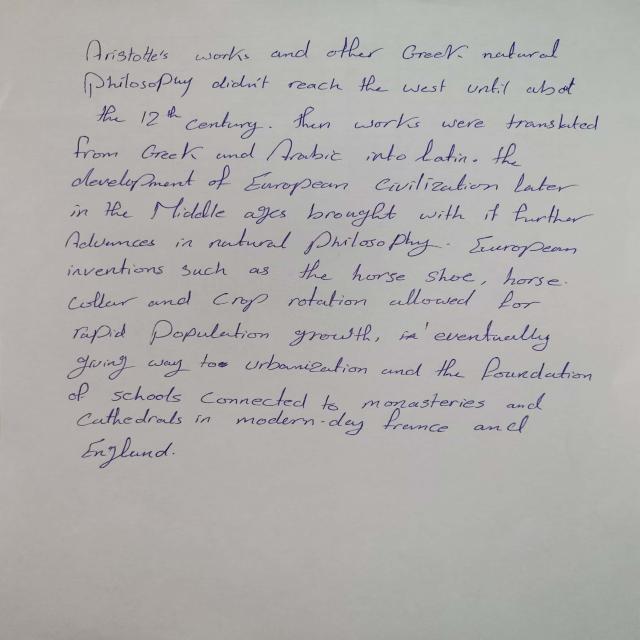 Aristotle's works and other Greek natural
Philosophy didn't reach the west until about
the 12th century. then works were translated
from Greek and Arabic into Latin. the
development of European Civilization later
in the Middle ages brought with it further
Advances in natural Philosophy. European
inventions such as the horse shoe, horse.
Collar and Crop rotation allowed for
rapid Population growth, eventually
giving way to urbanization and the foundation
of schools Connected to monasteries and
Cathedrals in modern-day france and
England.